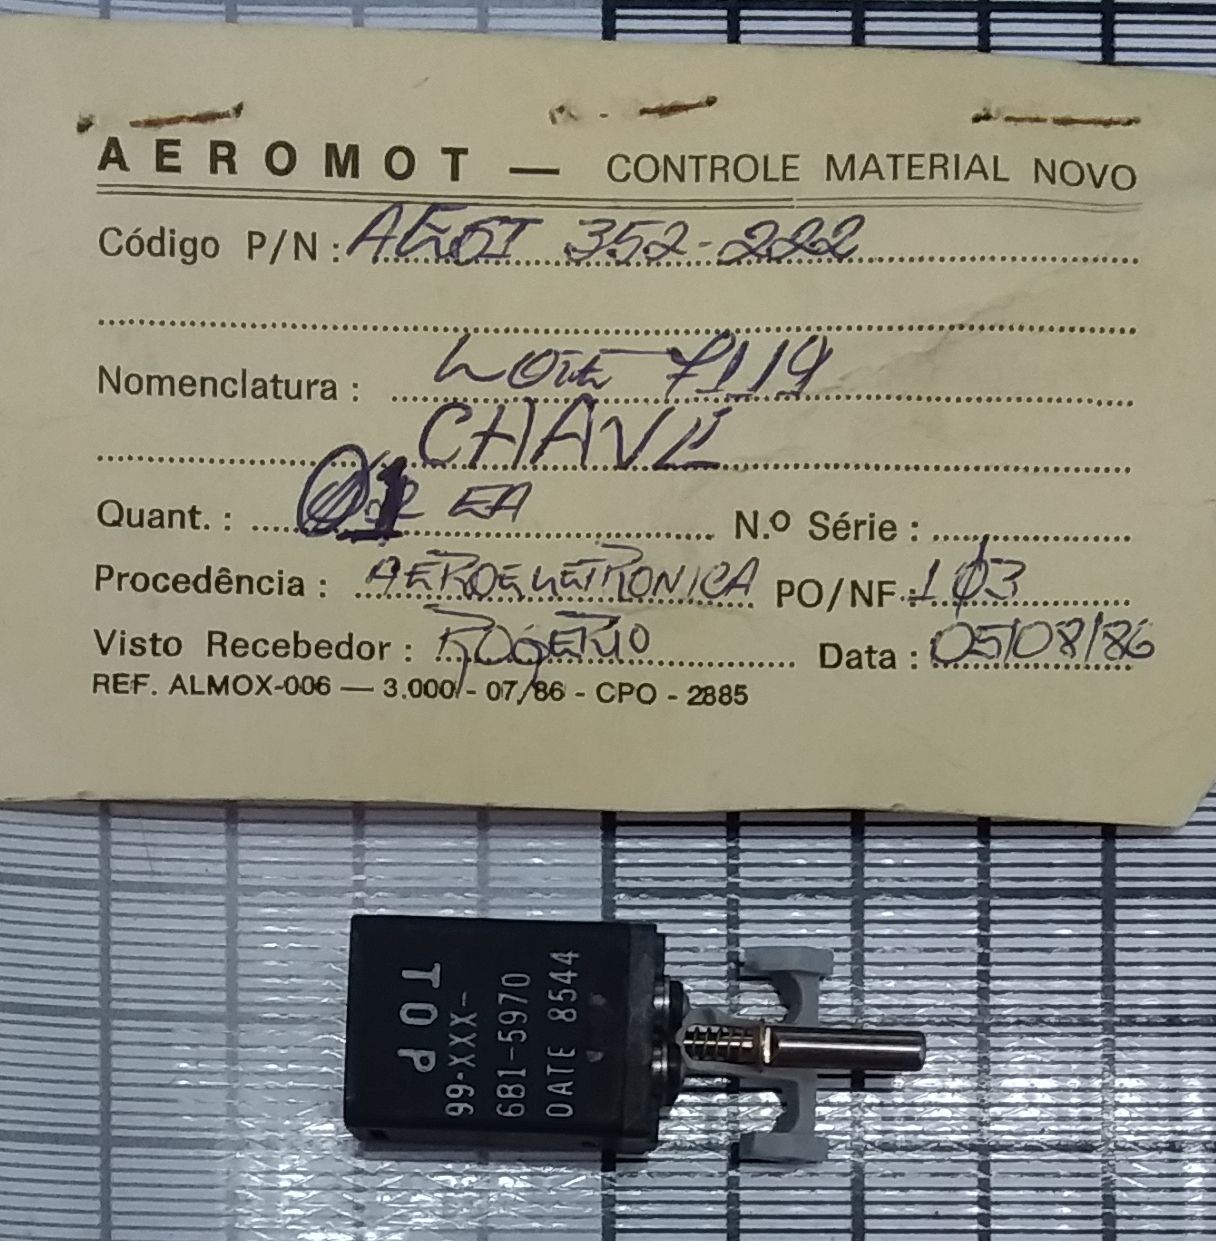 AEROMOT — CONTROLE MATERIAL NOVO
Código P/N: 352-222
Nomenclatura: LOTE 7119
CHAVE
Quant.: 01 EA N.º Série:
Procedência: AEROELETRONICA PO/NF 103
Visto Recebedor: ROGERIO Data: 05/08/86
REF. ALMOX-006 — 3.000 - 07/86 - CPO - 2885
TOP
99-XXX-
6B1-5970
DATE 8544